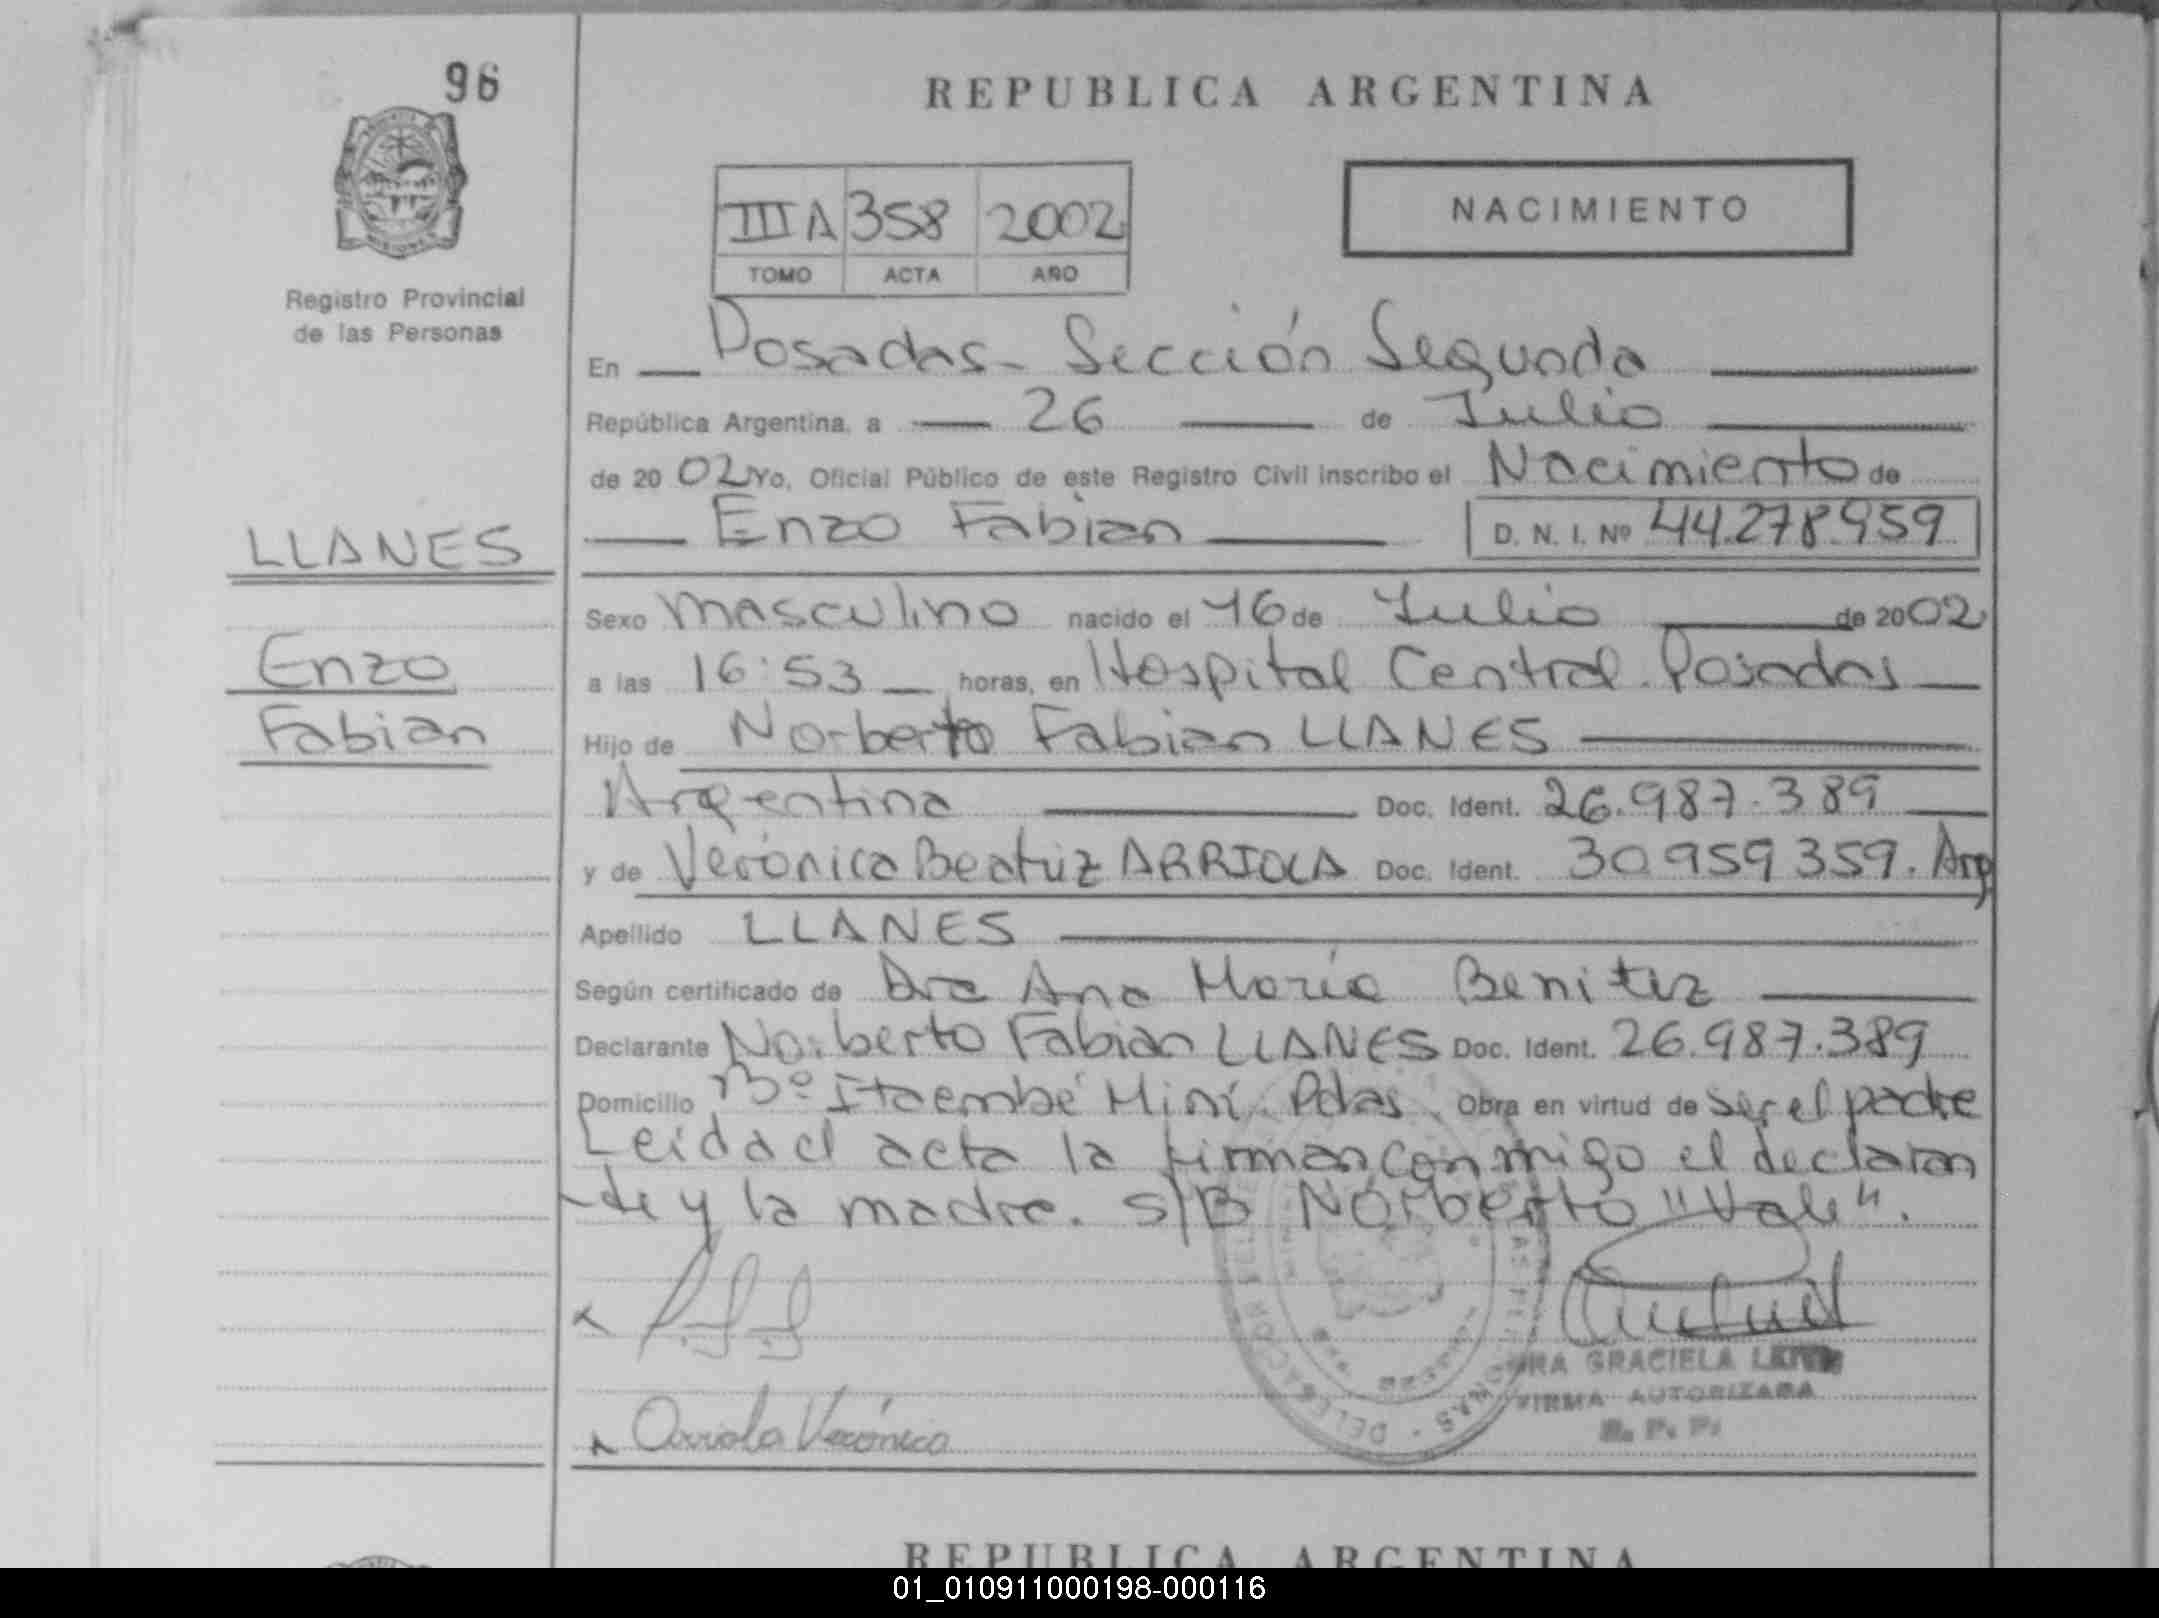 96
REPUBLICA ARGENTINA
III A 358 2002
TOMO ACTA AÑO
NACIMIENTO
Registro Provincial
de las Personas
En Posadas - Sección Segunda
República Argentina, a 26 de Julio
de 2002 Yo, Oficial Público de este Registro Civil inscribo el Nacimiento de
Enzo Fabian D. N. I. Nº 44.278.959
LLANES
Enzo
Fabian
Sexo masculino nacido el 16 de Julio de 2002
a las 16:53 horas, en Hospital Central. Posadas
Hijo de Norberto Fabian LLANES
Argentina Doc. Ident. 26.987.389
y de Verónica Beatriz ARRIOLA Doc. Ident. 30.959.359. Arg
Apellido LLANES
Según certificado de Dra Ana María Benitez
Declarante Norberto Fabian LLANES Doc. Ident. 26.987.389
Domicilio Bº Itaembé Miní. Pdas. Obra en virtud de ser el padre
Leida el acta la firman conmigo el declaran
-te y la madre. S/B Norberto "Vale".
Arriola Verónica
GRACIELA
FIRMA AUTORIZADA
R. P. P.
REPUBLICA ARGENTINA
01_010911000198-000116